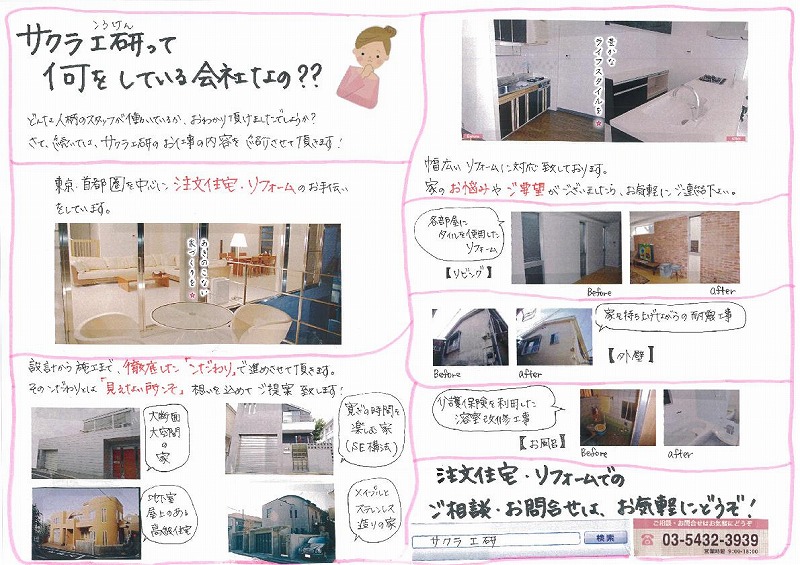 こうけん
サクラ工研って
何をしている会社なの??
どんな人柄のスタッフが働いているか、おわかり頂けましたでしょうか?
さて、続いては、サクラ工研のお仕事の内容を紹介させて頂きます!
東京・首都圏を中心に 注文住宅・リフォームのお手伝い
をしています。
あきのこない
家づくりを
設計から施工まで、徹底した「こだわり」で進めさせて頂きます。
そのこだわりとは「見えない所こそ」想いを込めてご提案致します!
大断面
大空間
の
家
寛ぎの時間を
楽しむ家
(SE構法)
地下室
屋上のある
高級住宅
メイプルと
ステンレス
造りの家
豊かな
ライフスタイルを
Before
After
幅広いリフォームに対応致しております。
家のお悩みやご要望がございましたら、お気軽にご連絡下さい。
各部屋に
タイルを使用した
リフォーム
【リビング】
Before
after
家を持ち上げながらの耐震工事
【外壁】
Before
after
介護保険を利用した
浴室改修工事
【お風呂】
Before
after
注文住宅・リフォームでの
ご相談・お問合せは、お気軽にどうぞ!
サクラ工研
検索
ご相談・お問合せはお気軽にどうぞ
03-5432-3939
営業時間 9:00-18:00